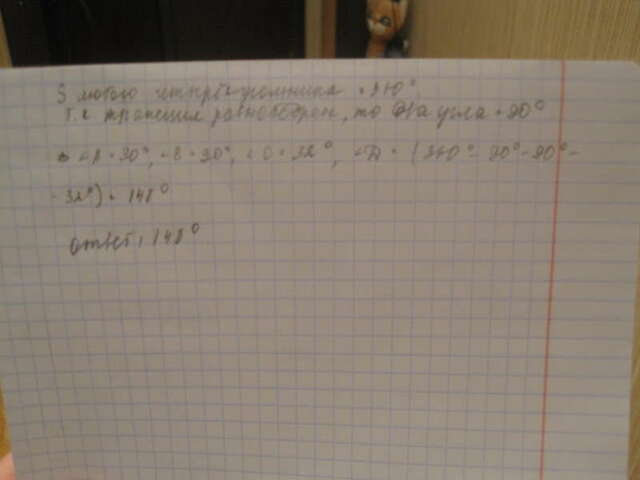 S любого четырёхугольника = 360°
т.к трапеция равнобедрен, то два угла = 90°
∠A = 90°, ∠B = 90°, ∠C = 32°, ∠D = (360° - 90° - 90° -
- 32°) = 148°
Ответ: 148°